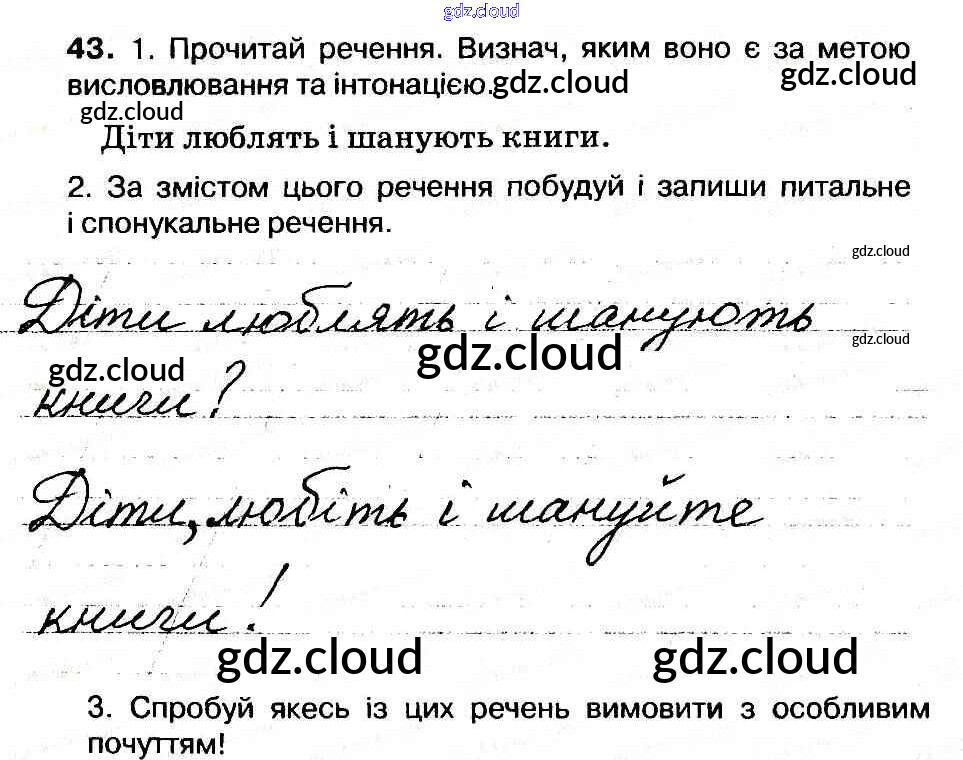 gdz.cloud
43. 1. Прочитай речення. Визнач, яким воно є за метою
gdz.cloud
висловлювання та інтонацією.gdz.cloud
gdz.cloud
Діти люблять і шанують книги.
2. За змістом цього речення побудуй і запиши питальне
і спонукальне речення.
gdz.cloud
Діти люблять і шанують
gdz.cloud
gdz.cloud
gdz.cloud
книги?
Діти, любіть і шануйте
книги!
gdz.cloud gdz.cloud
3. Спробуй якесь із цих речень вимовити з особливим
почуттям!